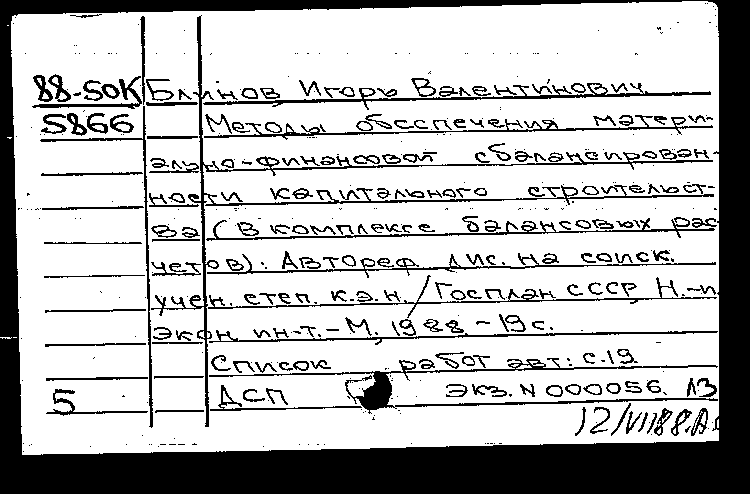 88-5ОК Блинов, Игорь Валентинович.
5866 Методы обеспечения матери-
ально-финансовой сбалансирован-
ности капитального строительст-
ва (в комплексе балансовых рас-
четов): Автореф. дис. на соиск.
учен. степ. к.э.н. / Госплан СССР, Н.-и.
экон. ин-т. - М., 1988 - 19 с.
Список работ авт: с.19
5 ДСП экз. N 000056. ЛЗ
12/VII88.